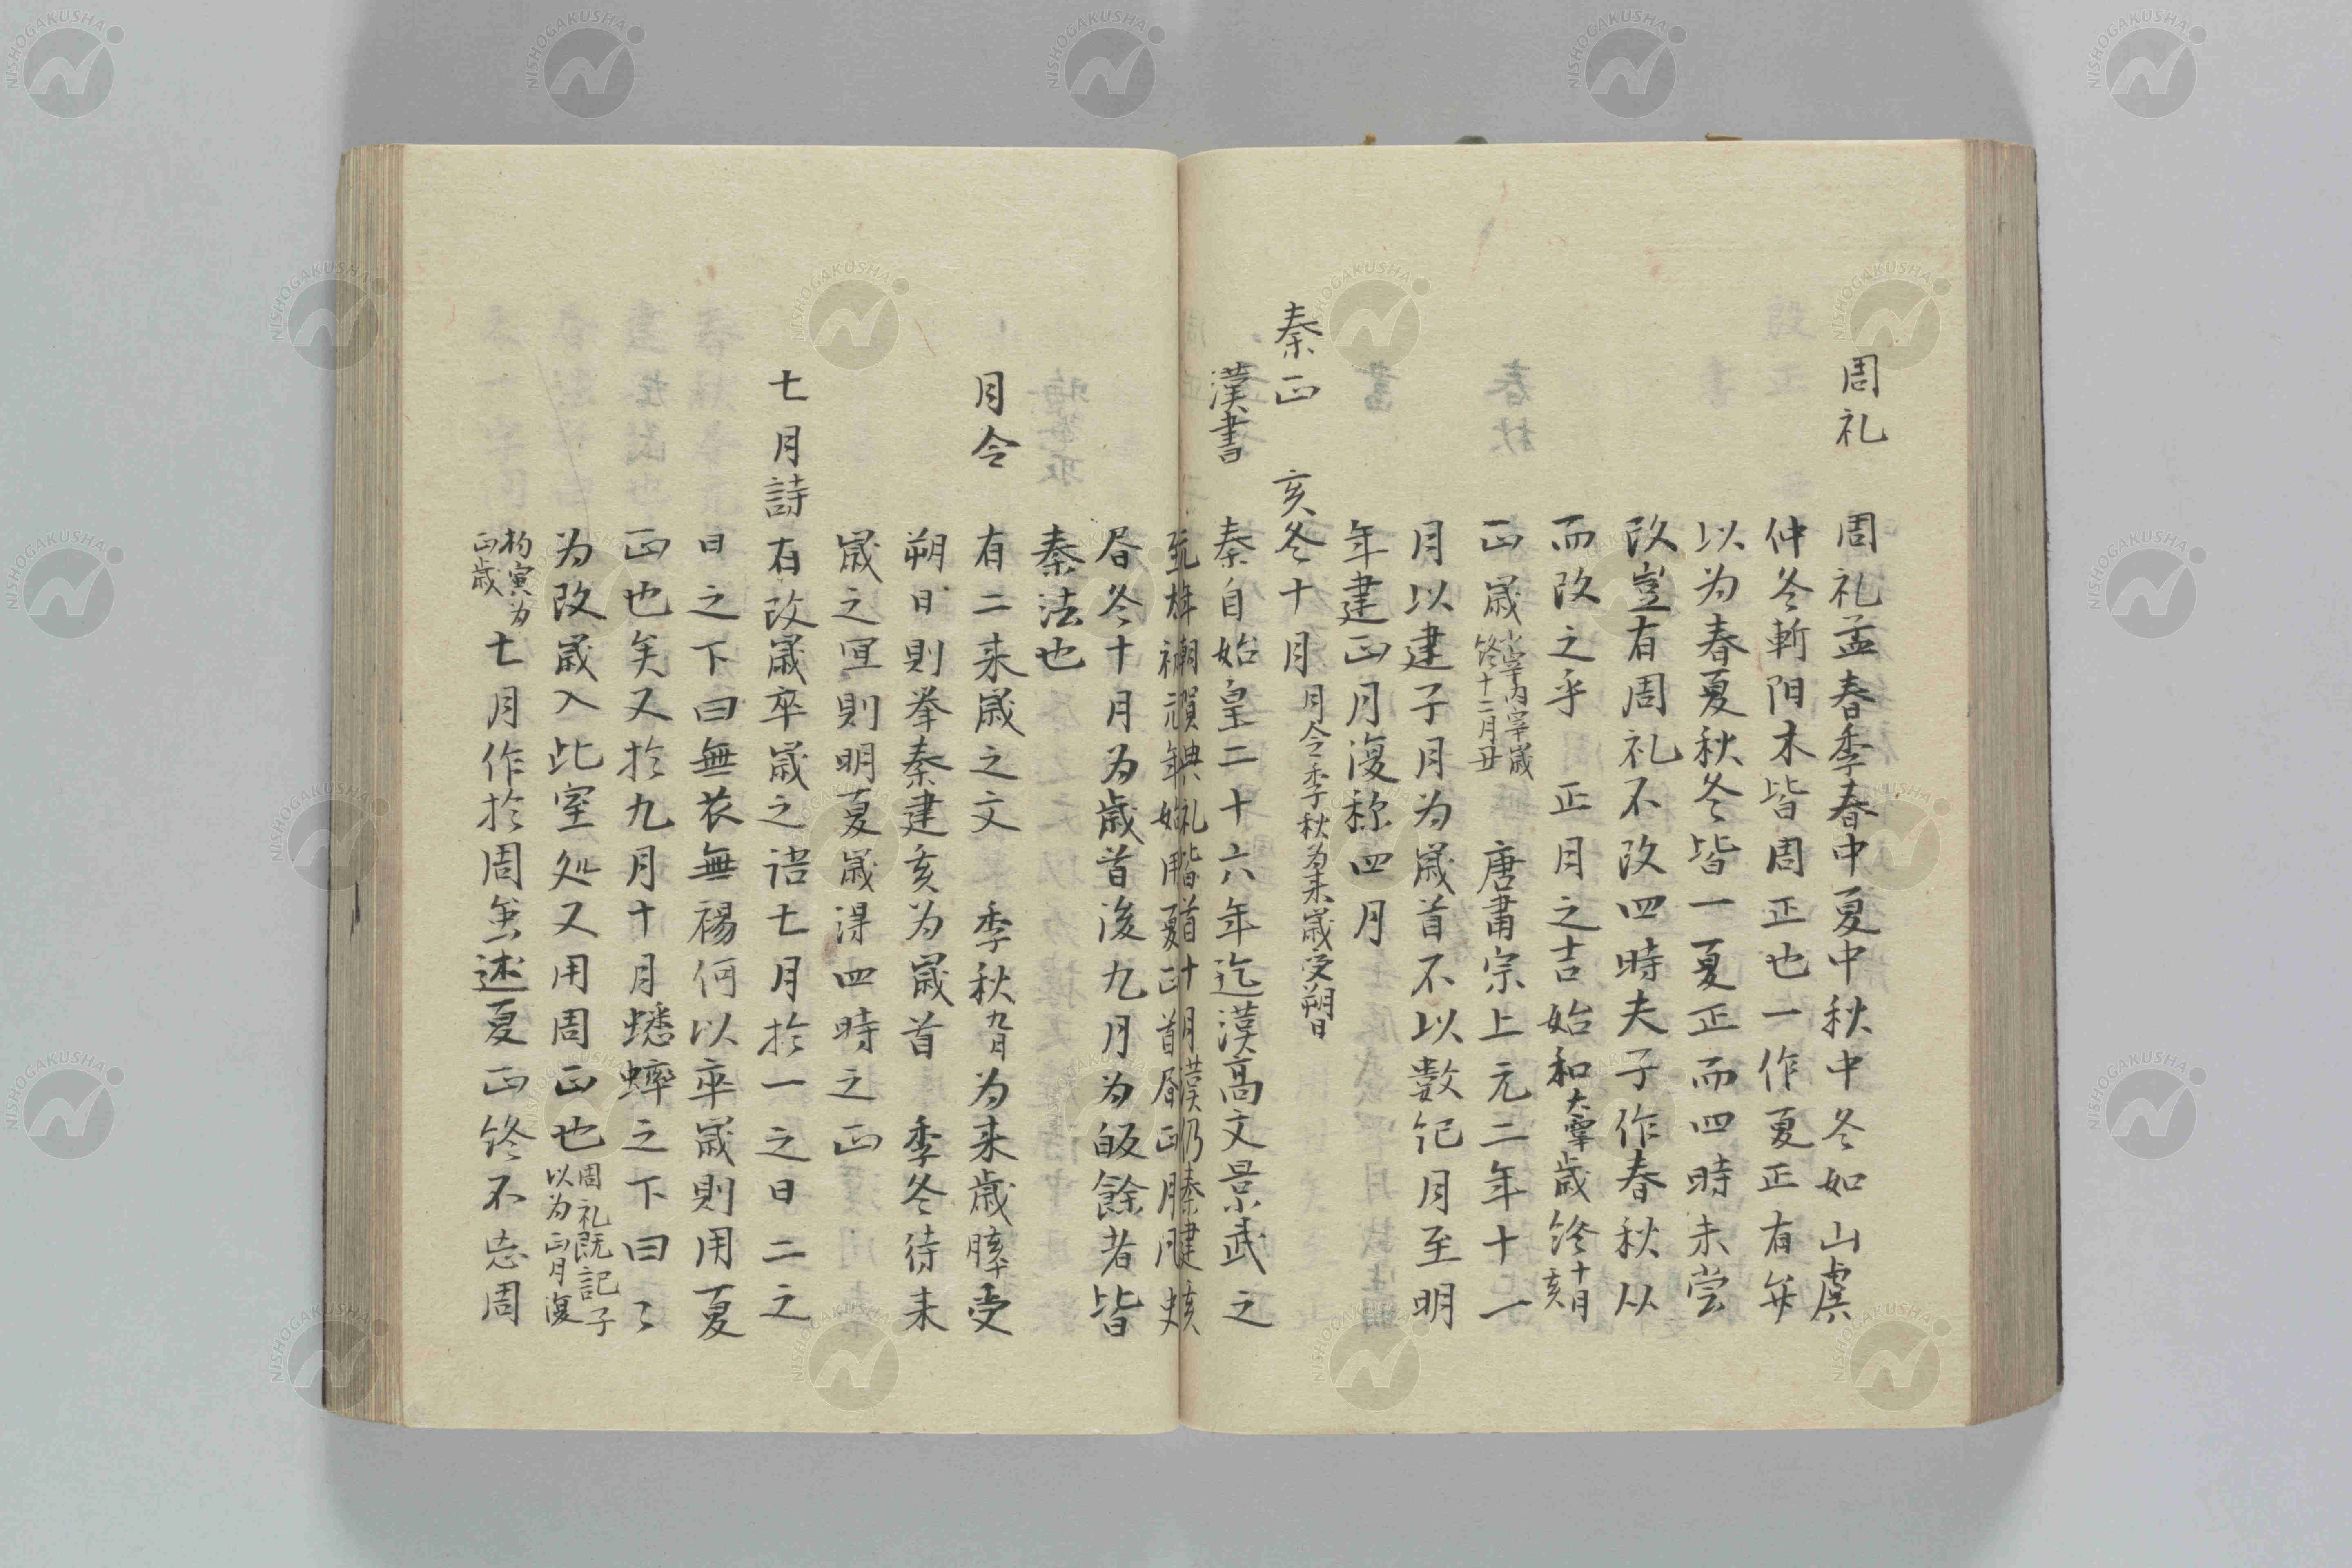 周礼 周礼孟春季春中夏中秋中冬如山虞
仲冬斬阳木皆周正也一作夏正有
以为春夏秋冬皆一夏正而四時未嘗
改豈有周礼不改四時夫子作春秋从
而改之乎 正月之吉始和 歳终十月亥
正歳 终十二月丑 唐肅宗上元二年十一
月以建子月为歳首不以数记月至明
年建正月復称四月
秦正 亥冬十月 月令季秋为来歳受朔日
漢書 秦自始皇二十六年迄漢高文景武之
冬十月为歳首後九月为皈餘者皆
秦法也
月令 有二来歳之文 季秋 为来歳 受
朔日則挙秦建亥为歳首 季冬待来
歳之宜則明夏歳淂四時之正
七月詩 有改歳卒歳之语七月於一之日二之
日之下曰無衣無褐何以卒歳則用夏
正也矣又於九月十月蟋蟀之下曰
为改歳入此室处又用周正也 周礼既記子 以为正月復
寅为 正歳 七月作於周 述夏正终不忘周
NISHOGAKUSHA